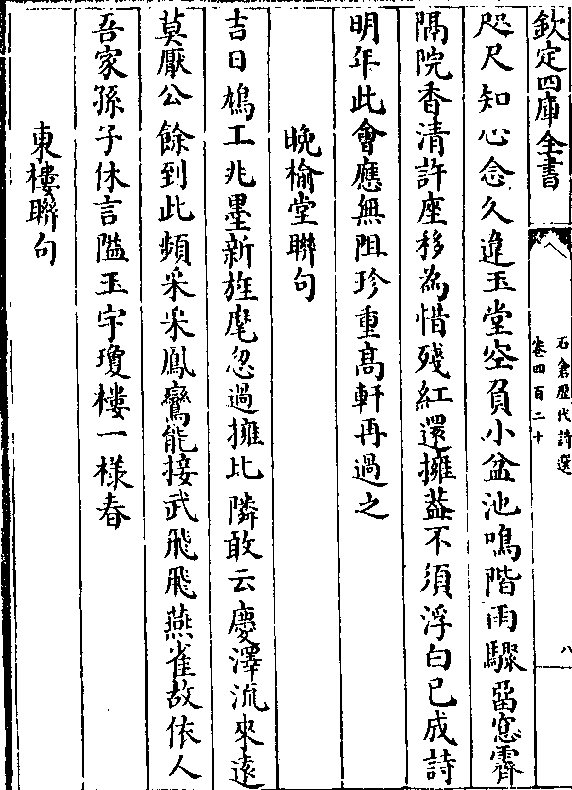 欽定四庫全書
石倉歷代詩選
卷四百二十
八
咫尺知心念久違玉堂空負小盆池鳴階雨驟當窓霽
隔院香清許座移為惜殘紅還擁蓋不須浮白已成詩
明年此會應無阻珍重髙軒再過之
晚榆堂聯句
吉日鳩工兆墨新旌麾忽過擁比隣敢云慶澤流來遠
莫厭公餘到此頻采采鳳鸞能接武飛飛燕雀故依人
吾家孫子休言隘玉宇瓊樓一様春
東樓聯句